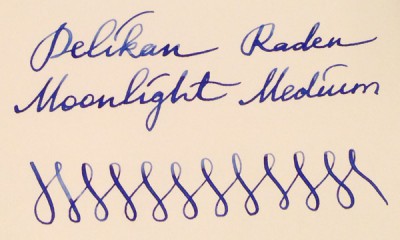 Pelikan Raden
Moonlight Medium